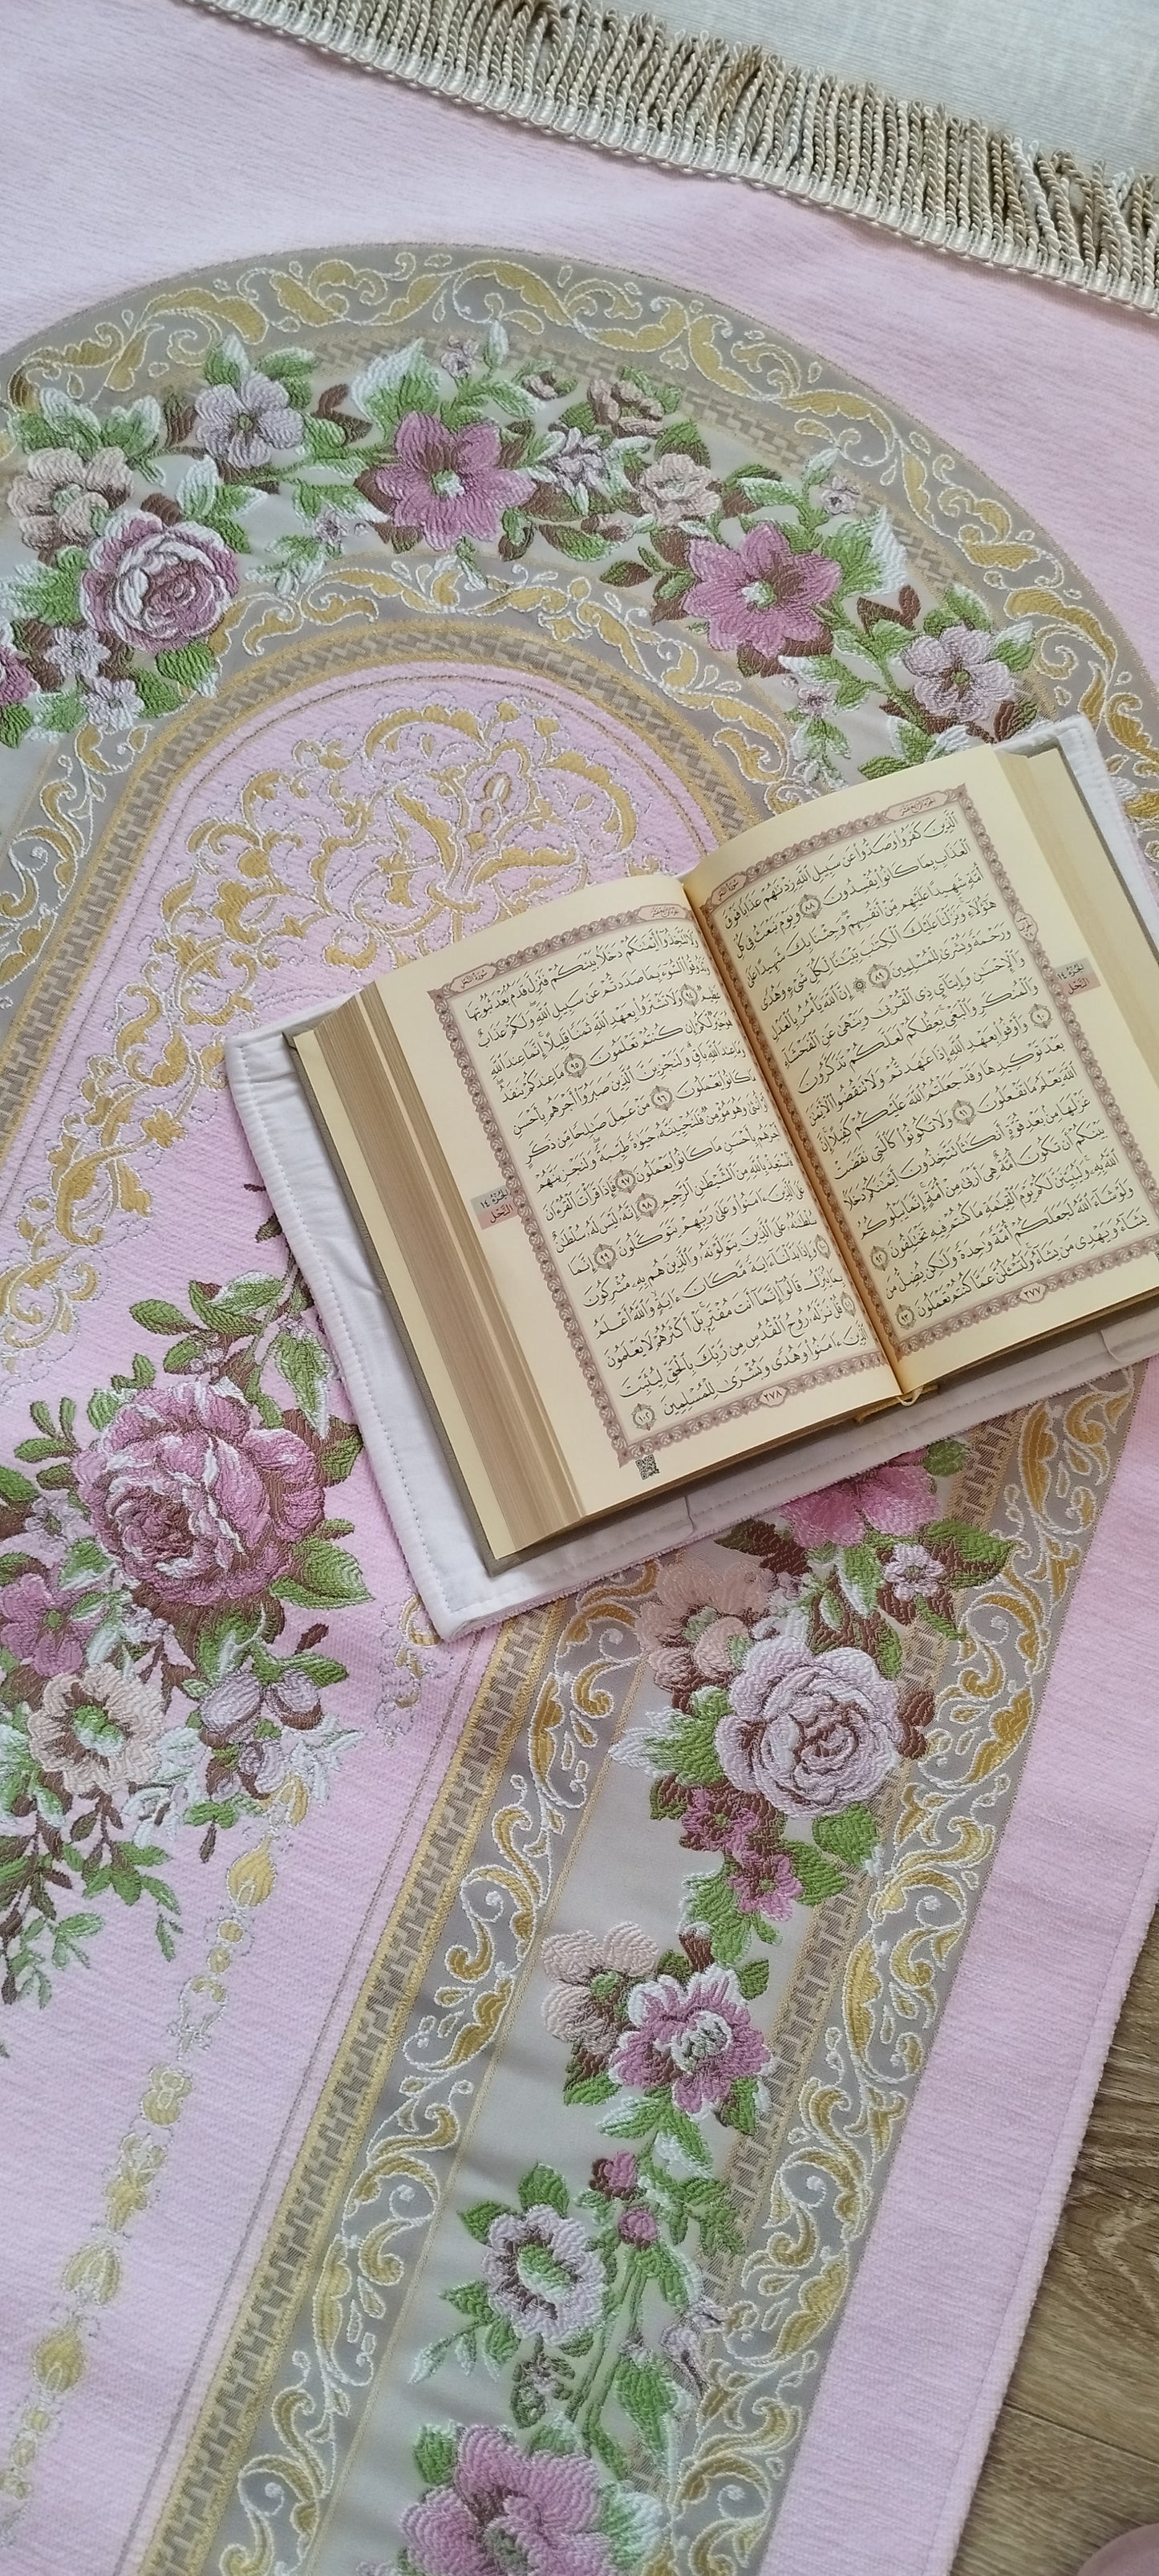 سورة النحل
الجزء الرابع عشر
الَّذِينَ كَفَرُوا وَصَدُّوا عَن سَبِيلِ اللَّهِ زِدْنَاهُمْ عَذَابًا فَوْقَ
الْعَذَابِ بِمَا كَانُوا يُفْسِدُونَ ٨٨ وَيَوْمَ نَبْعَثُ فِي كُلِّ
أُمَّةٍ شَهِيدًا عَلَيْهِم مِّنْ أَنفُسِهِمْ وَجِئْنَا بِكَ شَهِيدًا عَلَىٰ
هَٰؤُلَاءِ وَنَزَّلْنَا عَلَيْكَ الْكِتَابَ تِبْيَانًا لِّكُلِّ شَيْءٍ وَهُدًى
وَرَحْمَةً وَبُشْرَىٰ لِلْمُسْلِمِينَ ٨٩ ۞ إِنَّ اللَّهَ يَأْمُرُ بِالْعَدْلِ
وَالْإِحْسَانِ وَإِيتَاءِ ذِي الْقُرْبَىٰ وَيَنْهَىٰ عَنِ الْفَحْشَاءِ
وَالْمُنكَرِ وَالْبَغْيِ يَعِظُكُمْ لَعَلَّكُمْ تَذَكَّرُونَ ٩٠
وَأَوْفُوا بِعَهْدِ اللَّهِ إِذَا عَاهَدتُّمْ وَلَا تَنقُضُوا الْأَيْمَانَ
بَعْدَ تَوْكِيدِهَا وَقَدْ جَعَلْتُمُ اللَّهَ عَلَيْكُمْ كَفِيلًا إِنَّ
اللَّهَ يَعْلَمُ مَا تَفْعَلُونَ ٩١ وَلَا تَكُونُوا كَالَّتِي نَقَضَتْ
غَزْلَهَا مِن بَعْدِ قُوَّةٍ أَنكَاثًا تَتَّخِذُونَ أَيْمَانَكُمْ دَخَلًا
بَيْنَكُمْ أَن تَكُونَ أُمَّةٌ هِيَ أَرْبَىٰ مِنْ أُمَّةٍ إِنَّمَا يَبْلُوكُمُ
اللَّهُ بِهِ وَلَيُبَيِّنَنَّ لَكُمْ يَوْمَ الْقِيَامَةِ مَا كُنتُمْ فِيهِ تَخْتَلِفُونَ ٩٢
وَلَوْ شَاءَ اللَّهُ لَجَعَلَكُمْ أُمَّةً وَاحِدَةً وَلَٰكِن يُضِلُّ مَن
يَشَاءُ وَيَهْدِي مَن يَشَاءُ وَلَتُسْأَلُنَّ عَمَّا كُنتُمْ تَعْمَلُونَ ٩٣
٢٧٧
الجزء ١٤
النحل
سورة النحل
الجزء الرابع عشر
وَلَا تَتَّخِذُوا أَيْمَانَكُمْ دَخَلًا بَيْنَكُمْ فَتَزِلَّ قَدَمٌ بَعْدَ ثُبُوتِهَا
وَتَذُوقُوا السُّوءَ بِمَا صَدَدتُّمْ عَن سَبِيلِ اللَّهِ وَلَكُمْ عَذَابٌ
عَظِيمٌ ٩٤ وَلَا تَشْتَرُوا بِعَهْدِ اللَّهِ ثَمَنًا قَلِيلًا إِنَّمَا عِندَ اللَّهِ
هُوَ خَيْرٌ لَّكُمْ إِن كُنتُمْ تَعْلَمُونَ ٩٥ مَا عِندَكُمْ يَنفَدُ
وَمَا عِندَ اللَّهِ بَاقٍ وَلَنَجْزِيَنَّ الَّذِينَ صَبَرُوا أَجْرَهُم بِأَحْسَنِ
مَا كَانُوا يَعْمَلُونَ ٩٦ مَنْ عَمِلَ صَالِحًا مِّن ذَكَرٍ
أَوْ أُنثَىٰ وَهُوَ مُؤْمِنٌ فَلَنُحْيِيَنَّهُ حَيَاةً طَيِّبَةً وَلَنَجْزِيَنَّهُمْ
أَجْرَهُم بِأَحْسَنِ مَا كَانُوا يَعْمَلُونَ ٩٧ فَإِذَا قَرَأْتَ الْقُرْآنَ
فَاسْتَعِذْ بِاللَّهِ مِنَ الشَّيْطَانِ الرَّجِيمِ ٩٨ إِنَّهُ لَيْسَ لَهُ سُلْطَانٌ
عَلَى الَّذِينَ آمَنُوا وَعَلَىٰ رَبِّهِمْ يَتَوَكَّلُونَ ٩٩ إِنَّمَا
سُلْطَانُهُ عَلَى الَّذِينَ يَتَوَلَّوْنَهُ وَالَّذِينَ هُم بِهِ مُشْرِكُونَ
١٠٠ وَإِذَا بَدَّلْنَا آيَةً مَّكَانَ آيَةٍ وَاللَّهُ أَعْلَمُ
بِمَا يُنَزِّلُ قَالُوا إِنَّمَا أَنتَ مُفْتَرٍ بَلْ أَكْثَرُهُمْ لَا يَعْلَمُونَ
١٠١ قُلْ نَزَّلَهُ رُوحُ الْقُدُسِ مِن رَّبِّكَ بِالْحَقِّ لِيُثَبِّتَ
الَّذِينَ آمَنُوا وَهُدًى وَبُشْرَىٰ لِلْمُسْلِمِينَ ١٠٢
٢٧٨
الجزء ١٤
النحل